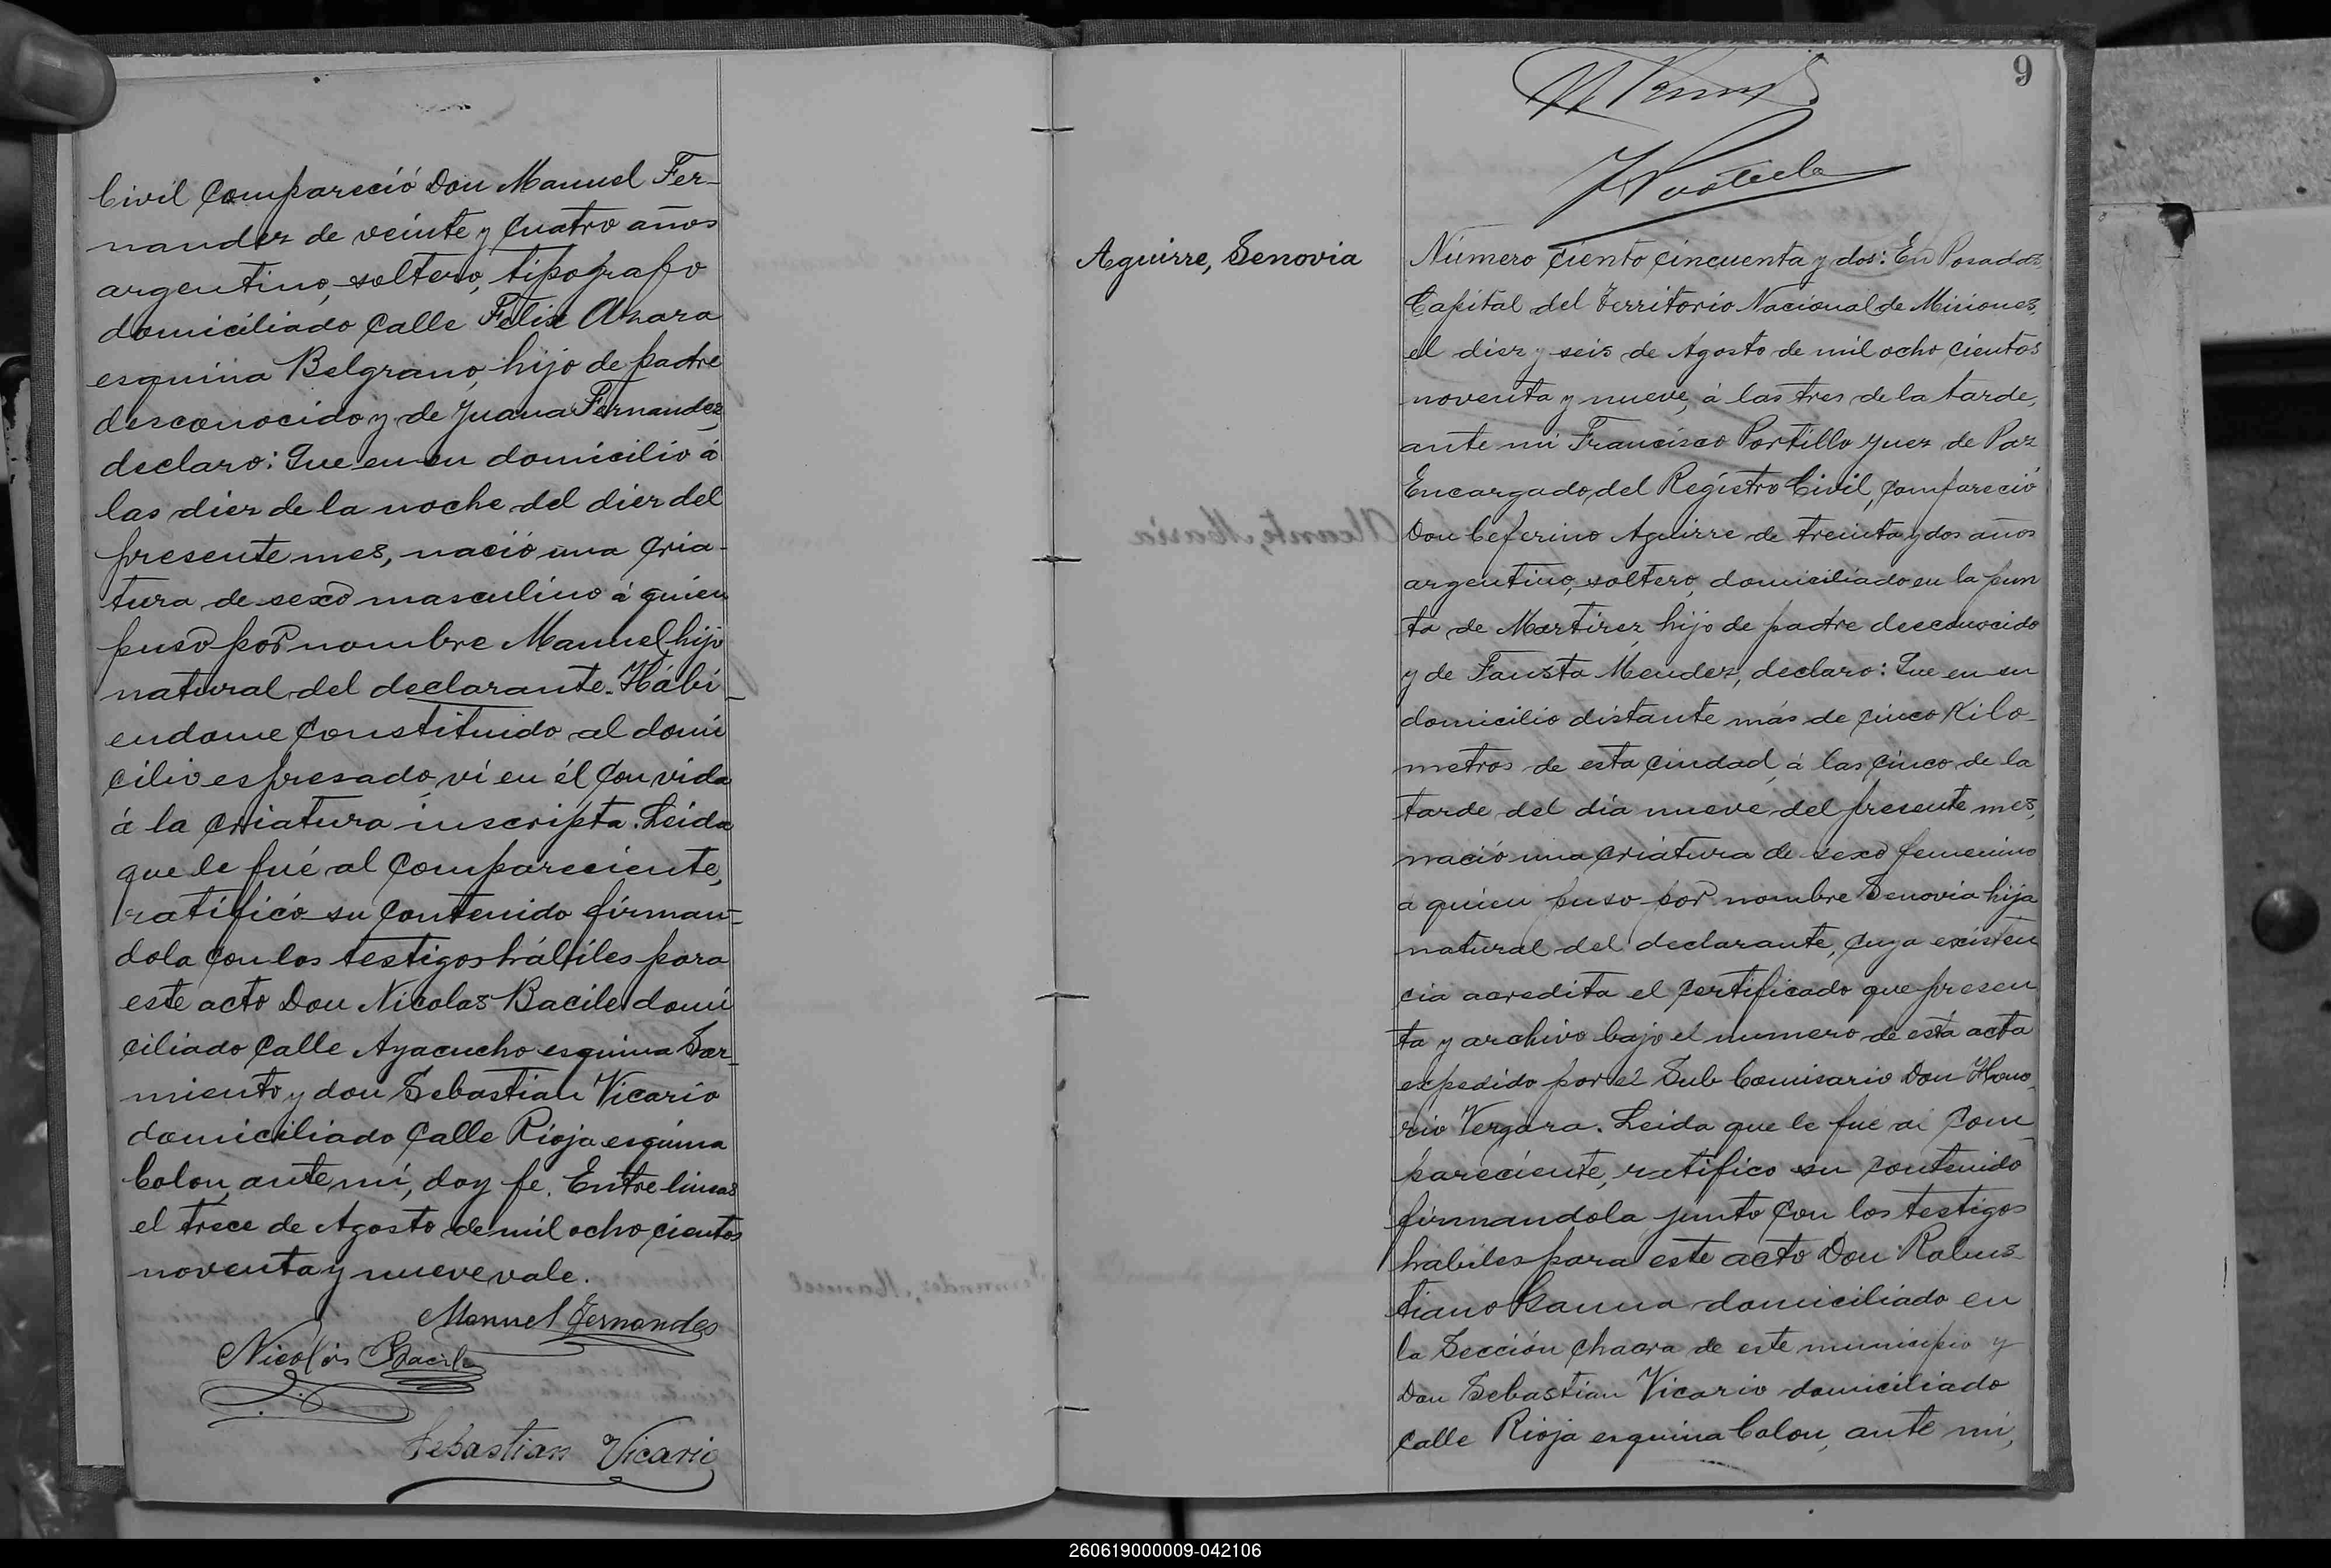 Civil Compareció Don Manuel Fer-
nandez de veinte y cuatro años
argentino, soltero, tipografo
domiciliado calle Felix Azara
esquina Belgrano, hijo de padre
desconocido y de Juana Fernandez,
declaro: Que en su domicilio á
las diez de la noche del diez del
presente mes, nació una cria-
tura de sexo masculino á quien
puso por nombre Manuel, hijo
natural del declarante. Hábi-
endome constituido al domi
cilio espresado, ví en él con vida
á la criatura inscripta. Leida
que le fué al compareciente,
ratificó su contenido firman-
dola con los testigos hábiles para
este acto Don Nicolas Bacile domi
ciliado calle Ayacucho esquina Sar-
miento y don Sebastian Vicario
domiciliado calle Rioja esquina
Colon, ante mí, doy fe. Entre lineas
el trece de Agosto de mil ocho cientos
noventa y nueve vale.
Manuel Fernandes
Nicolás Bacile
Sebastian Vicario
9
Aguirre, Senovia
Número ciento cincuenta y dos: En Posadas,
Capital del Territorio Nacional de Misiones,
el diez y seis de Agosto de mil ocho cientos
noventa y nueve, á las tres de la tarde,
ante mi Francisco Portillo Juez de Paz
Encargado del Registro Civil, compareció
Don Ceferino Aguirre de treinta y dos años
argentino, soltero, domiciliado en la pun
ta de Martirez, hijo de padre desconocido
y de Fausta Mendez, declaro: Que en su
domicilio distante más de cinco Kilo-
metros de esta ciudad, á las cinco de la
tarde del día nueve del presente mes,
nació una criatura de sexo femenino
a quien puso por nombre Senovia hija
natural del declarante, cuya existen
cia acredita el certificado que presen
ta y archivo bajo el numero de esta acta
expedido por el Sub Comisario Don Hono-
rio Vergara. Leida que le fue al com-
pareciente, ratifico su contenido
firmandola junto con los testigos
habiles para este acto Don Robus
tiano domiciliado en
la Sección chacra de este municipio y
Don Sebastian Vicario domiciliado
calle Rioja esquina Colon, ante mi,
260619000009-042106